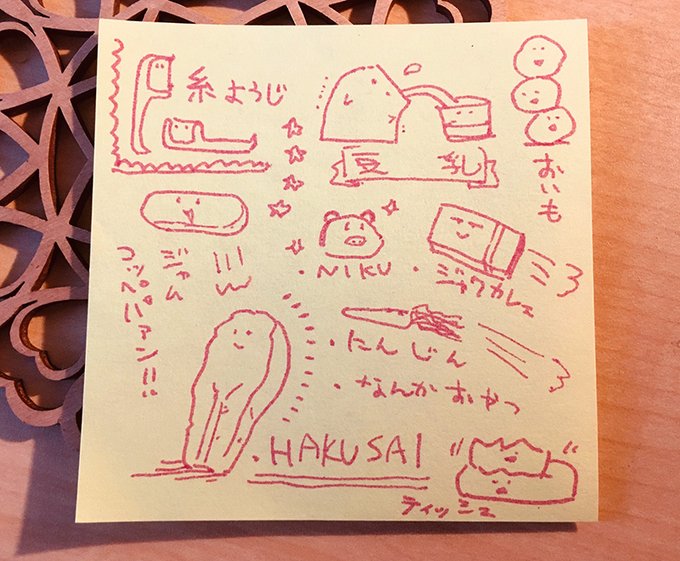 糸ようじ
豆乳
おいも
ジャム
コッペパァン!!
・NIKU
・ジャワカレェ
・たんじん
・なんかおやつ
・HAKUSAI
ティッシュ